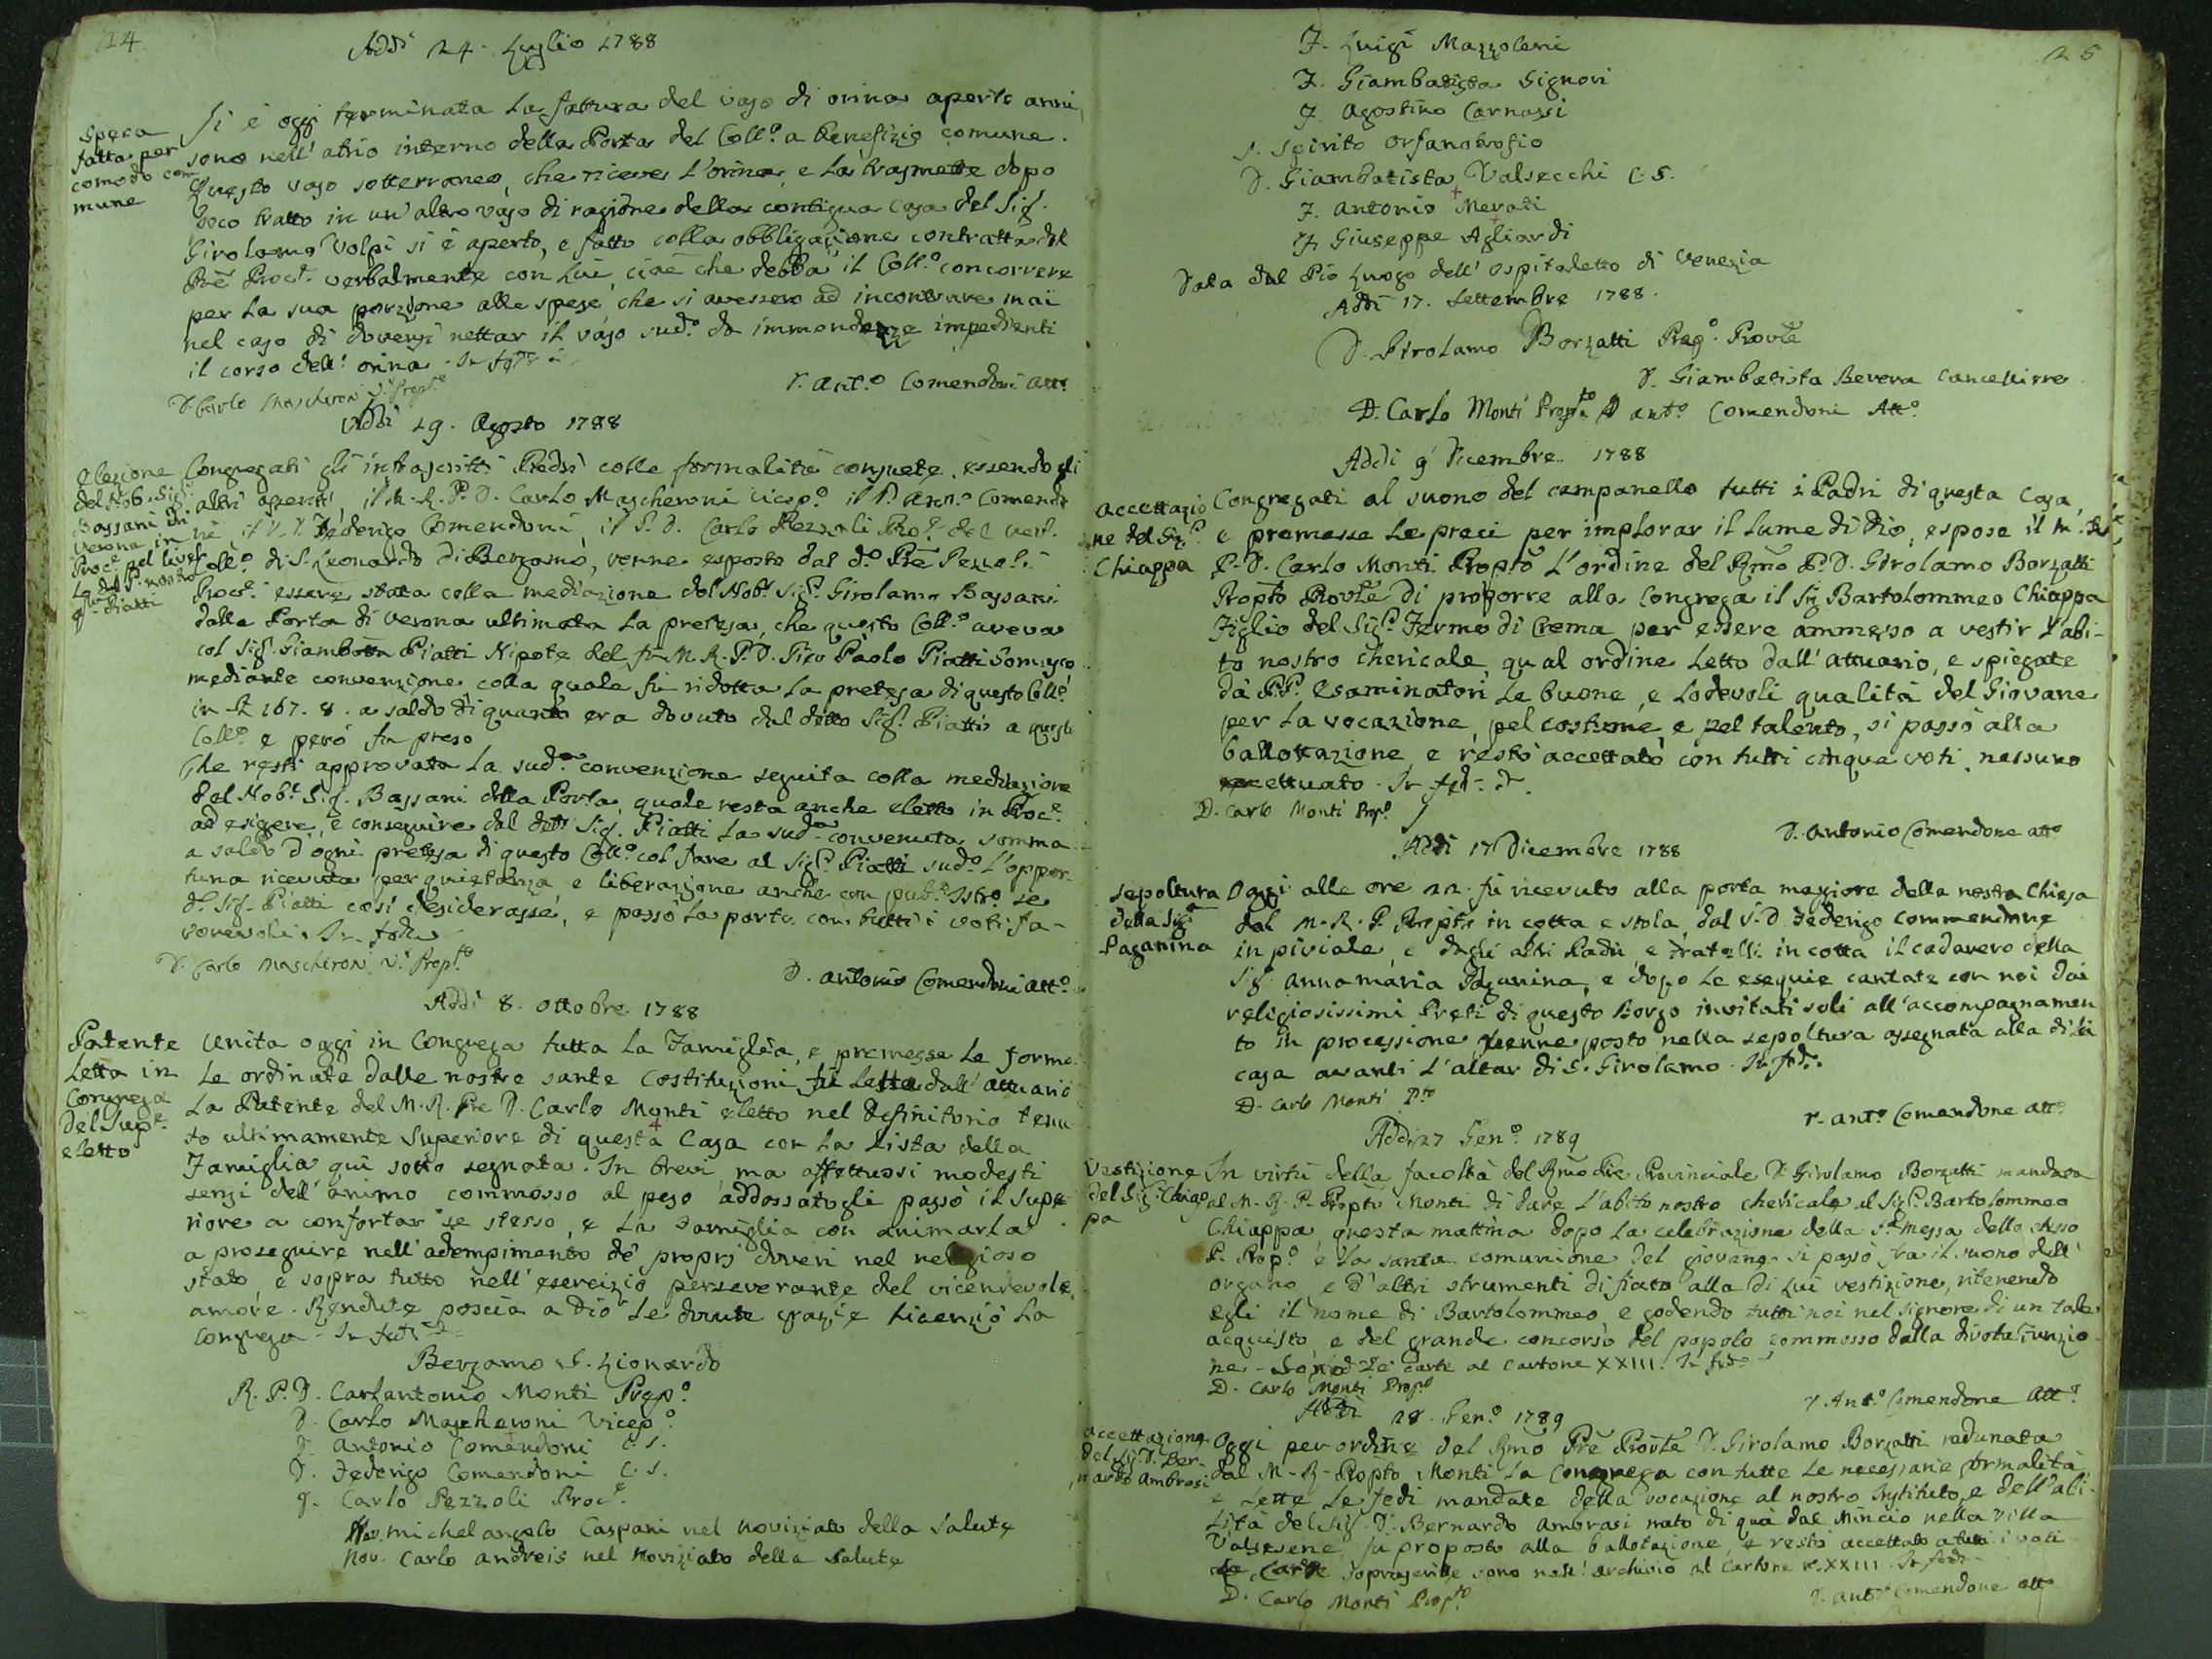 24
Addi 24. Luglio 1788
Spesa
fatta per
comodo com
mune
Si è oggi terminata la fattura del vaso di orina aperto anni
sono nell'atrio interno della Porta del Coll.o a benefizio comune.
Questo vaso sotterraneo, che riceve l'orina, e la trasmette dopo
poco tratto in un'altro vaso di ragione della contigua casa del Sig.
Girolamo Volpi si è aperto, e fatto colla obbligazione contratta dal
Prē Proc.r verbalmente con lui, cioè che debba il Coll.o concorrere
per la sua porzione alle spese, che si avessero ad incontrare mai
nel caso di doversi nettar il vaso sud.o da immondezze impedienti
il corso dell'orina. In fede
D. Carlo Mascheroni V. Prep.to
P. Ant.o Comendoni Att.o
Addi 29. Agosto 1788
Elezione
del Nob. Sig.
Bassani di
Verona in
Proc.e pel livel
lo del P. nostro
Piatti
Congregati gli infrascritti Padri colle formalità consuete, essendo gli
altri assenti, il M. R. P. D. Carlo Mascheroni Vicep.o il P. Ant.o Comendo
ni, il P. D. Federigo Comendoni, il P. D. Carlo Pezzoli Pro.r del ven.
Coll.o di S. Leonardo di Bergamo, venne esposto dal d.o Prē Pezzoli
Proc.r essere stata colla mediazione del Nob.e Sig.r Girolamo Bassani
dalla Porta di Verona ultimata la pretesa, che questo Coll.o aveva
col Sig. Giambatta Piatti Nipote del fu M. R. P. D. Pier Paolo Piatti Somasco
mediante convenzione colla quale fu ridotta la pretesa di questo Coll.o
in L 167. 8. a saldo di quanto era dovuto dal detto Sig. Piatti a questo
Coll.o e però fu preso
Che resti approvata la sud.a convenzione seguita colla mediazione
del Nob.e Sig. Bassani della Porta, quale resta anche eletto in Proc.e
ad esigere, e conseguire dal detto Sig. Piatti la sud.a convenuta somma
a saldo d'ogni pretesa di questo Coll.o col fare al Sig.r Piatti sud.o l'oppor-
tuna ricevuta per quietanza e liberazione anche con pub.o Istro. se
d.o Sig. Piatti così desiderasse, e passò la parte con tutti i voti fa-
vorevoli. In fede
D. Carlo Mascheroni V. Prop.to
D. Antonio Comendoni att.o
Addi 8. Ottobre 1788
Patente
Letta in
Congrega
del Sup.e
eletto
Unita oggi in Congrega tutta la Famiglia, e premesse le forma-
le ordinate dalle nostre sante Costituzioni, fu letta dall'attuario
la Patente del M. R. Pre D. Carlo Monti eletto nel Definitorio tenu-
to ultimamente Superiore di questa Casa con la lista della
Famiglia qui sotto segnata. In brevi, ma affettuosi modesti
sensi dell'animo commosso al peso addossatogli passò il Supe-
riore a confortar se stesso, e la Famiglia con animarla
a proseguire nell'adempimento de' proprj doveri nel religioso
stato, e sopra tutto nell'esercizio perseverante del vicendevole
amore. Rendute poscia a Dio le dovute grazie licenziò la
Congrega. In fede
Bergamo S. Lionardo
R. P. D. Carlantonio Monti Prep.o
D. Carlo Mascheroni Vicep.o
D. Antonio Comendoni C. S.
D. Federigo Comendoni C. S.
D. Carlo Pezzoli Proc.e
Nov. Michelangelo Caspani nel noviziato della Salute
Nov. Carlo Andreis nel Noviziato della Salute
25
F. Luigi Mazzoleni
F. Giambatista Signori
F. Agostino Carnassi
S. Spirito Orfanotrofio
D. Giambatista Valsecchi C. S.
F. Antonio Merati
F. Giuseppe Agliardi
Data dal Pio Luogo dell'Ospitaletto di Venezia
Addi 17. Settembre 1788.
D. Girolamo Borzatti Prep.o Provle
D. Giambatista Bevera Cancelliere
D. Carlo Monti Prep.to D Ant.o Comendoni Att.o
Addi 9 Dicembre 1788
Accettazio
ne del Sig.r
Chiappa
Congregati al suono del campanello tutti i Padri di questa Casa,
e premesse le preci per implorar il lume di Dio, espose il M. R.
P. D. Carlo Monti Propto l'ordine del Rmo P. D. Girolamo Borzatti
Propto Provle di proporre alla Congrega il Sig Bartolommeo Chiappa
Figlio del Sig.r Fermo di Crema per essere ammesso a vestir l'abi-
to nostro chericale, qual ordine letto dall'attuario, e spiegate
da PP. Esaminatori le buone, e lodevoli qualità del Giovane
per la vocazione, pel costume, e pel talento, si passò alla
ballottazione, e restò accettato con tutti cinque voti, nessuno
eccettuato. In fede
D. Carlo Monti Prop.o
D. Antonio Comendone atto
Addi 17 Dicembre 1788
Sepoltura
della Sig.a
Paganina
Oggi alle ore 22. fu ricevuto alla porta maggiore della nostra Chiesa
dal M. R. P. Propto in cotta e stola, dal P. D. Federigo Commendone
in piviale, e dagli altri Padri, e Fratelli in cotta il cadavero della
Sig. Annamaria Paganina, e dopo le esequie cantate con noi dai
religiosissimi Preti di questo Borgo invitati soli all'accompagnamen
to in processione venne posto nella sepoltura assegnata alla di lei
casa avanti l'altar di S. Girolamo. In fede.
D. Carlo Monti P.to
P. Ant.o Comendone att.o
Addi 27 Gen.o 1789
Vestizione
del Sig. Chiap
pa
In virtù della facoltà del Rmo Pre Provinciale D. Girolamo Borzatti mandata
al M. R. P. Propto Monti di dare l'abito nostro chericale al Sig.r Bartolommeo
Chiappa, questa mattina dopo la celebrazione della S.ta Messa dello stesso
P. Prop.o e la santa comunione del giovane si passò fra il suono dell'
organo, e d'altri strumenti di fiato alla di lui vestizione, ritenendo
egli il nome di Bartolommeo, e godendo tutti noi nel Signore di un tale
acquisto, e del grande concorso del popolo commosso dalla divota Funzio-
ne. Sono le carte al Cartone XXIII. In fede
D. Carlo Monti Prop.to
P. Ant.o Comendone Att.o
Addi 28. Gen.o 1789
Accettazione
del Sig. D. Ber-
nardo Ambrosi
Oggi per ordine del Rmo Prē Provle D. Girolamo Borzatti radunata
dal M. R. Propto Monti la Congrega con tutte le necessarie formalità
e lette le fedi mandate della vocazione al nostro Instituto, e dell'abi-
lità del Sig. D. Bernardo Ambrosi nato di qua dal Mincio nella Villa
fu proposto alla ballotazione, e restò accettato a tutti i voti
Le Carte soprascritte sono nell'archivio al Cartone n. XXIII. In fede
D. Carlo Monti Prop.to
P. Ant.o Comendone atto